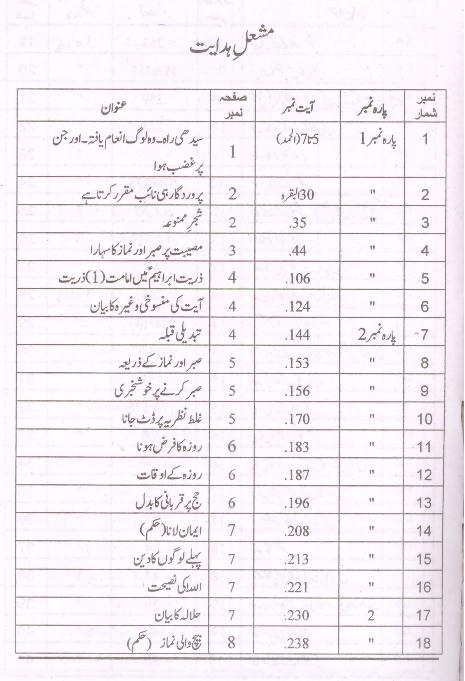 مشعلِ ہدایت
نمبر شمار پارہ نمبر آیت نمبر صفحہ نمبر عنوان
1 پارہ نمبر 1 5تا7(الحمد) 1 سیدھی راہ۔ وہ لوگ انعام یافتہ۔ اور جن
پر غضب ہوا
2 " 30البقرہ 2 پروردگار ہی نائب مقرر کرتا ہے
3 " 35. 2 شجرِ ممنوعہ
4 " 44. 3 مصیبت پر صبر اور نماز کا سہارا
5 " 106. 4 ذریت ابراہیمؑ میں امامت (1) ذریت
6 " 124. 4 آیت کی منسوخی وغیرہ کا بیان
7- پارہ نمبر 2 144. 4 تبدیلی قبلہ
8 " 153. 5 صبر اور نماز کے ذریعہ
9 " 156. 5 صبر کرنے پر خوشخبری
10 " 170. 5 غلط نظریہ پر ڈٹ جانا
11 " 183. 6 روزہ کا فرض ہونا
12 " 187. 6 روزہ کے اوقات
13 " 196. 6 حج پر قربانی کا بدل
14 " 208. 7 ایمان لانا (حکم)
15 " 213. 7 پہلے لوگوں کا دین
16 " 221. 7 اللہ کی نصیحت
17 2 230. 7 حلالہ کا بیان
18 " 238. 8 بیچ والی نماز (حکم)